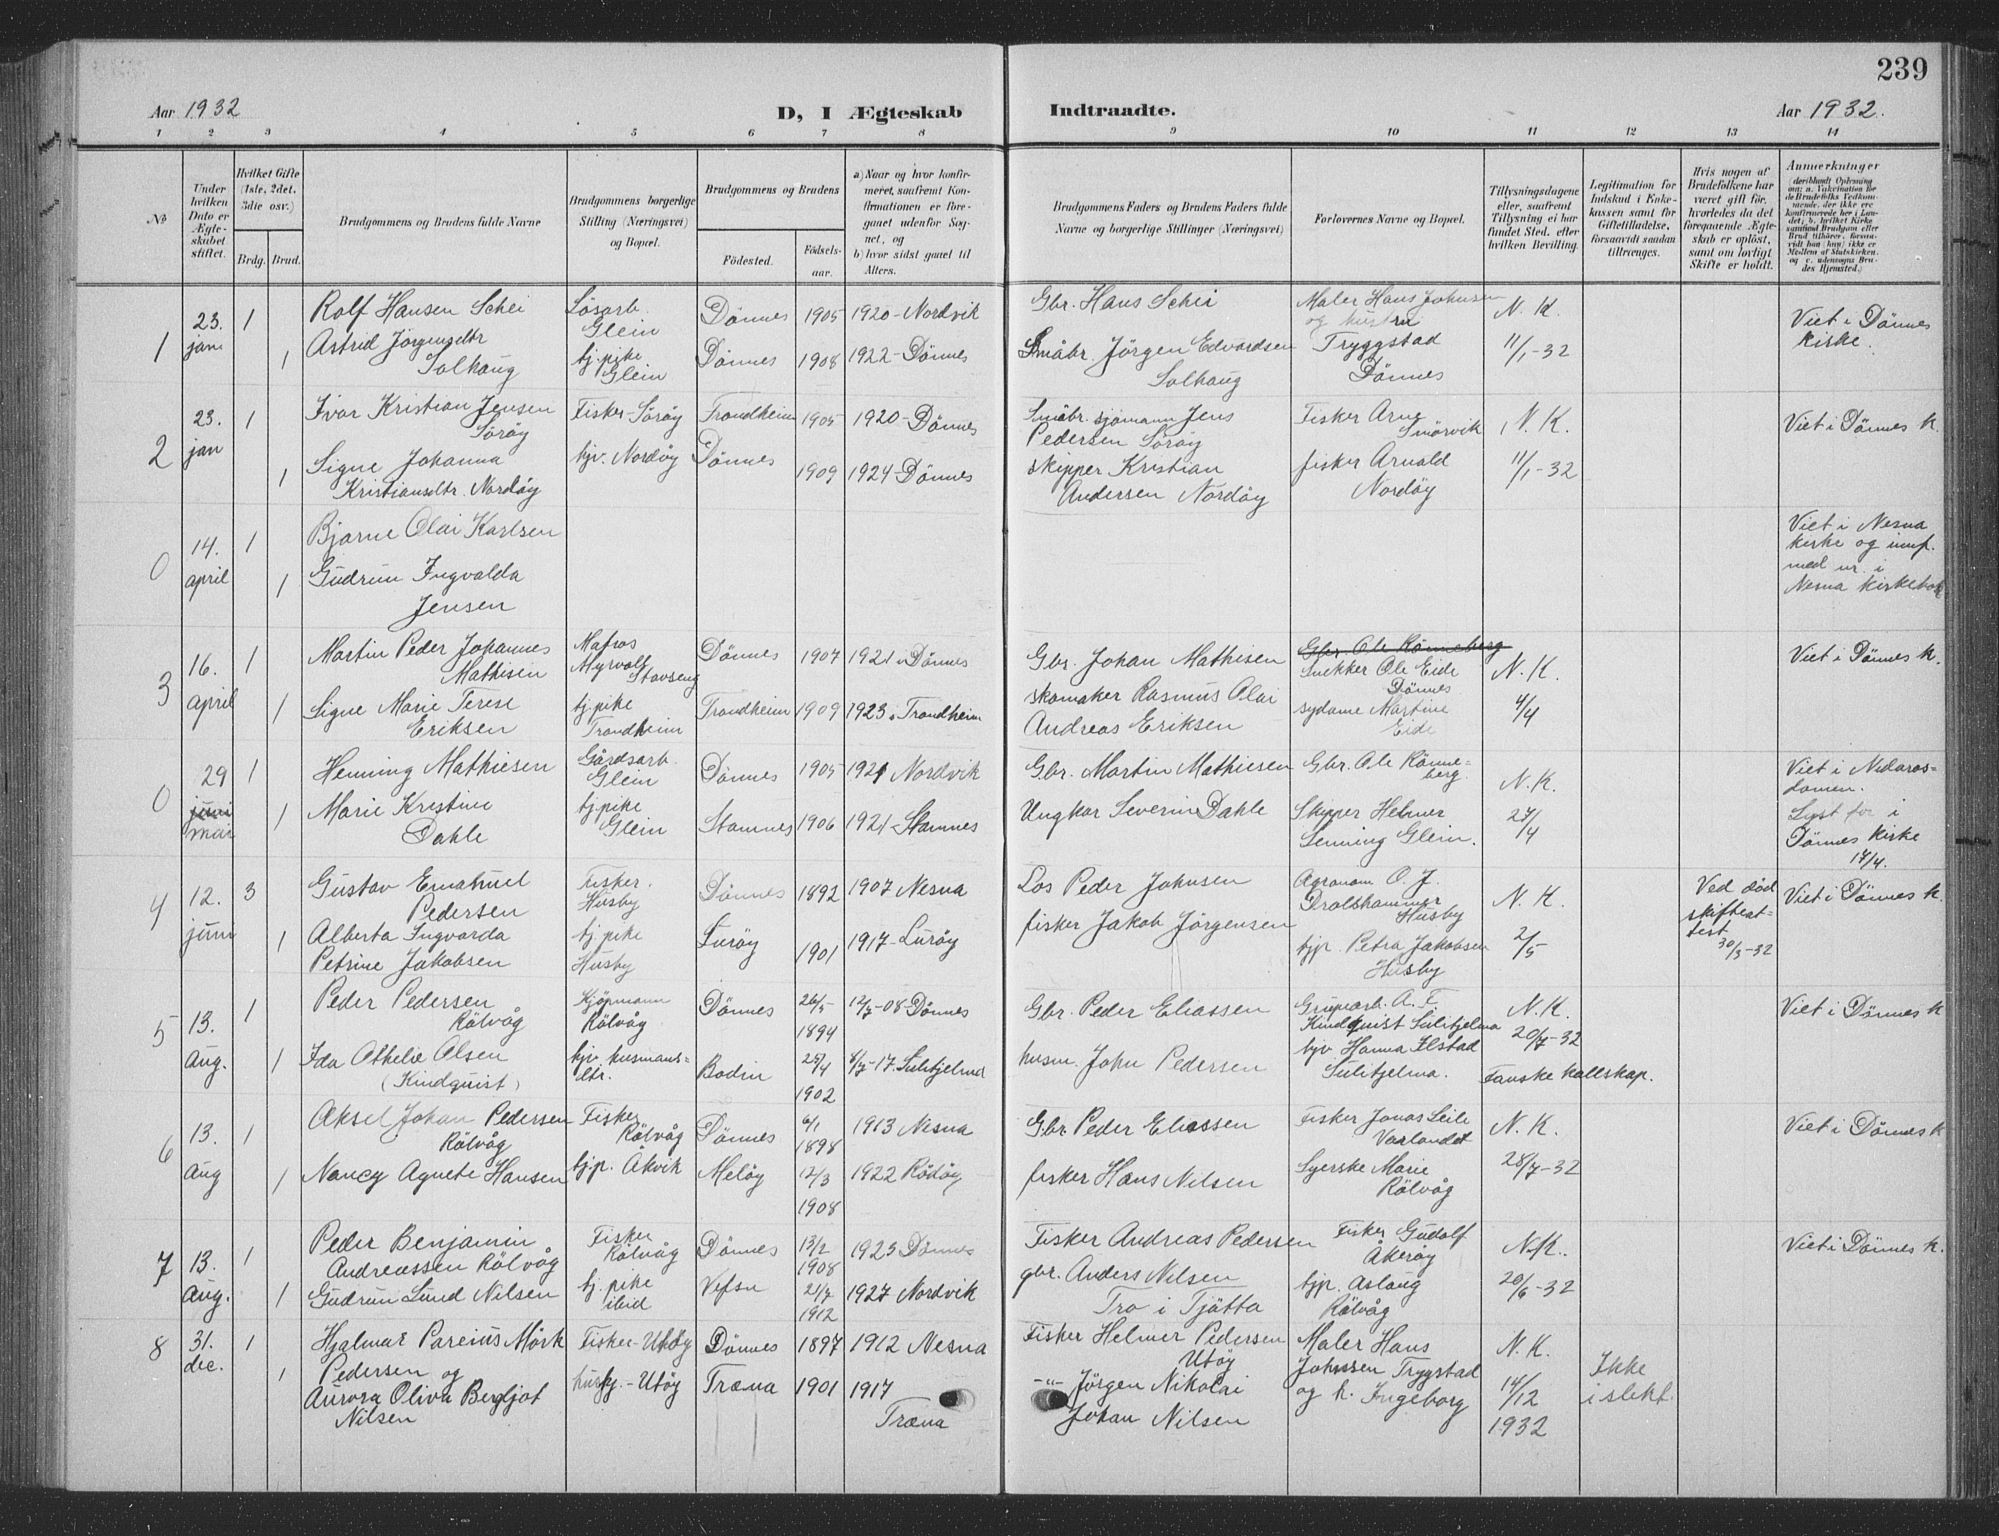 239
Aar 1932
D, I Ægteskab Indtraadte.
Aar 1932.
1 2 3 4 5 6 7 8 9 10 11 12 13 14
No
Under hvilken Dato er Ægteskabet stiftet.
Hvilket Gifte (1ste, 2det, 3die osv.)
Brdg. Brud.
Brudgommens og Brudens fulde Navne
Brudgommens borgerlige Stilling (Næringsvei) og Bopæl.
Brudgommens og Brudens
Fødested.
Fødselsaar.
a) Naar og hvor konfirmeret, saafremt Konfirmationen er foregaaet udenfor Sognet, og
b) hvor sidst gaaet til Alters.
Brudgommens Faders og Brudens Faders fulde Navne og borgerlige Stillinger (Næringsvei)
Forlovernes Navne og Bopæl.
Tillysningsdagene eller, saafremt Tillysning ei har fundet Sted, efter hvilken Bevilling.
Legitimation for Indskud i Enkekassen samt for Giftetilladelse, forsaavidt saadan tiltrænges.
Hvis nogen af Brudefolkene har været gift før, hvorledes da det foregaaende Ægteskab er opløst, samt om lovligt Skifte er holdt.
Anmerkninger
1
23. jan
1
Rolf Hansen Schei
Løsarb. Glein
Dönnes
1905
1920 - Nordvik
Gbr. Hans Schei
Maler Hans Johnsen og hustru
N. K.
Viet i Dönnes kirke.
1
Astrid Jörgensdtr Solhaug
tj. pike Glein
Dönnes
1908
1922 - Dönnes
Småbr. Jörgen Edvardsen Solhaug
Tryggstad Dönnes
11/1-32
2
23. jan
1
Ivar Kristian Jensen Söröy
Fisker - Söröy
Trondheim
1905
1920 - Dönnes
Småbr. sjömann Jens Pedersen Söröy
Fisker Arne Smörvik
N. K.
Viet i Dönnes k.
1
Signe Johanna Kristiansdtr. Nordöy
hjv. Nordöy
Dönnes
1909
1924 - Dönnes
skipper Kristian Andersen Nordöy
fisker Arnold Nordöy
11/1-32
0
14. april
1
Bjarne Olai Karlsen
Viet i Nesna kirke og innf. med nr. i Nesna kirkebok
1
Gudrun Ingvalda Jensen
3
16. april
1
Martin Peder Johannes Mathisen
Matros Myrvoll Stavseng
Dönnes
1907
1921 i Dönnes
Gbr. Johan Mathisen
Gbr. Ole Rönneberg
Snekker Ole Eide Dönnes
N. K.
Viet i Dönnes k.
1
Signe Marie Terese Eriksen
tj. pike Trondheim
Trondheim
1909
1923 i Trondheim
skomaker Rasmus Olai Andreas Eriksen
sydame Martine Eide
4/4
0
29 juni mai
1
Henning Mathiesen
Gårdsarb. Glein
Dönnes
1905
1921 Nordvik
Gbr. Martin Mathiesen
Gbr. Ole Rönneberg
N. K.
Viet i Nidarosdomen.
1
Marie Kristine Dahle
tj. pike Glein
Stamnes
1906
1921 - Stamnes
Ungkar Severin Dahle
Skipper Helmer Senning Glein.
27/4
Lyst for i Dönnes kirke 17/4.
4
12. juni
3
Gustav Emanuel Pedersen
Fisker. Husby
Dönnes
1892
1907 Nesna
Los Peder Johnsen
Agronom O. J. Drolshammer Husby
N. K.
Ved död skifteattest 30/3-32
Viet i Dönnes k.
1
Alberta Ingvarda Petrine Jakobsen
tj. pike Husby
Luröy
1901
1917 - Luröy
fisker Jakob Jörgensen
tjp. Petra Jakobsen Husby
2/5
5
13. Aug.
1
Peder Pedersen Rölvåg
Kjöpmann Rölvåg
Dönnes
26/5 1894
12/7-08 Dönnes
Gbr. Peder Eliassen
Gruvearb. A. F. Kindquist Sulitjelma
N. K.
Viet i Dönnes k
1
Ida Athelie Olsen (Kindquist)
hjv. husmansdtr.
Bodin
25/4 1902
8/7-17 Sulitjelma
husm. John Pedersen
hjv Hanna Ilstad Sulitjelma.
20/7-32
Fauske kallskap.
6
13. Aug
1
Aksel Johan Pedersen Rölvåg
Fisker Rölvåg
Dönnes
6/1 1898
1913 Nesna
Gbr. Peder Eliassen
Fisker Jonas Leite Vaalandet
N. K.
Viet i Dönnes k
1
Nancy Agnete Hansen
tj.p. Åkvik
Melöy
12/3 1908
1922 Rödöy
fisker Hans Nilsen
Syerske Marie Rölvåg
28/7-32
7
13. Aug.
1
Peder Benjamin Andreassen Rölvåg
Fisker Rölvåg
Dönnes
13/2 1908
1923 Dönnes
Fisker Andreas Pedersen
Fisker Gudolf Åkeröy
N.K.
Viet i Dönnes k.
1
Gudrun Lund Nilsen
tj. pike ibid
Vefsn
21/7 1912
1927 Nordvik
gbr. Anders Nilsen Tro i Tjötta
tjp. Aslaug Rölvåg
20/6-32
8
31. dec.
1
Hjalmar Pareius Mörk Pedersen og
Fisker - Utöy
Dönnes
1897
1912 Nesna
Fisker Helmer Pedersen Utöy
Maler Hans Johnsen Trygstad og h. Ingeborg
N. K.
Ikke i slekt.
1
Aurora Oliva Bergljot Nilsen
Utöy
Træna
1901
1917 Træna
-"- Jörgen Nikolai Johan Nilsen
14/12 1932